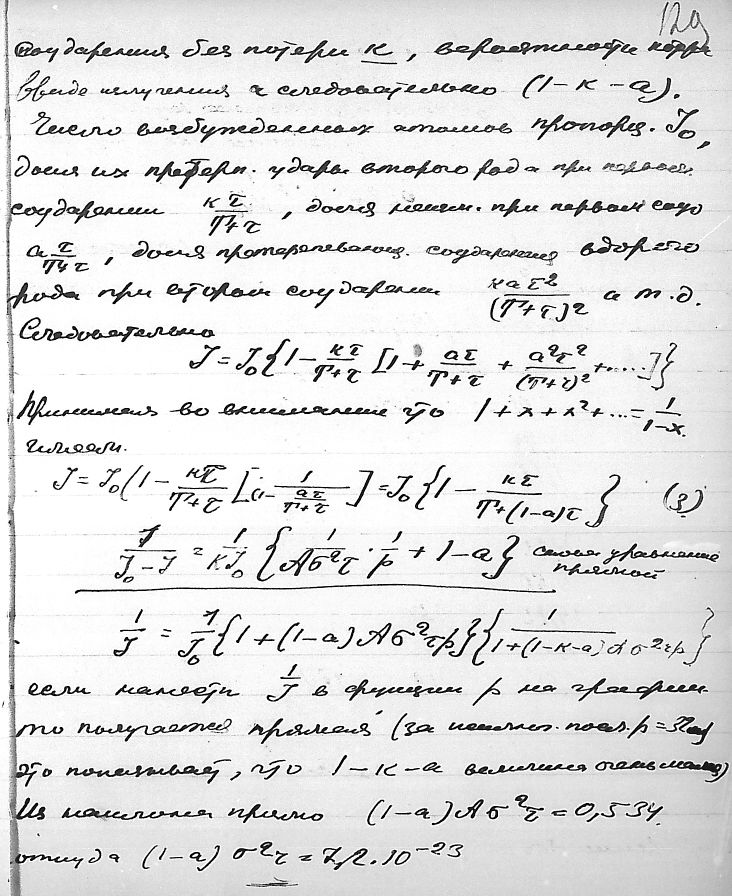 129
соударения без потери к, вероятности
ввиде излучения и следовательно (1-к-а).
Число возбужденных атомов пропорц. J₀,
доля их претерп. удары второго рода при первом
соударении кτ/(T+τ), доля при первом соуд
a τ/(T+τ), доля претерпевающ. соударения второго
рода при втором соударении каτ²/(T+τ)² и т.д.
Следовательно
J = J₀{1 - кτ/(T+τ) [1 + aτ/(T+τ) + a²τ²/(T+τ)² + ....]}
Принимая во внимание что 1+x+x²+... = 1/(1-x).
имеем.
J = J₀(1 - кτ/(T+τ) [1/(1 - aτ/(T+τ))] = J₀{1 - кτ/(T+(1-a)τ)} (3)
1/(J₀-J) = 1/(кJ₀) {1/(Aσ²τ) · 1/p + 1-a} снова уравнение
прямой
1/J = 1/J₀ {1+(1-a)Aσ²τp}{1/(1+(1-к-a)Aσ²τp)}
если нанести 1/J в функции p на графике
то получается прямая (за исключ. посл. p=
это показывает, что 1-к-а величина очень малая)
Из наклона прямо (1-a)Aσ²τ = 0,534.
откуда (1-a)σ²τ = 7,2.10⁻²³